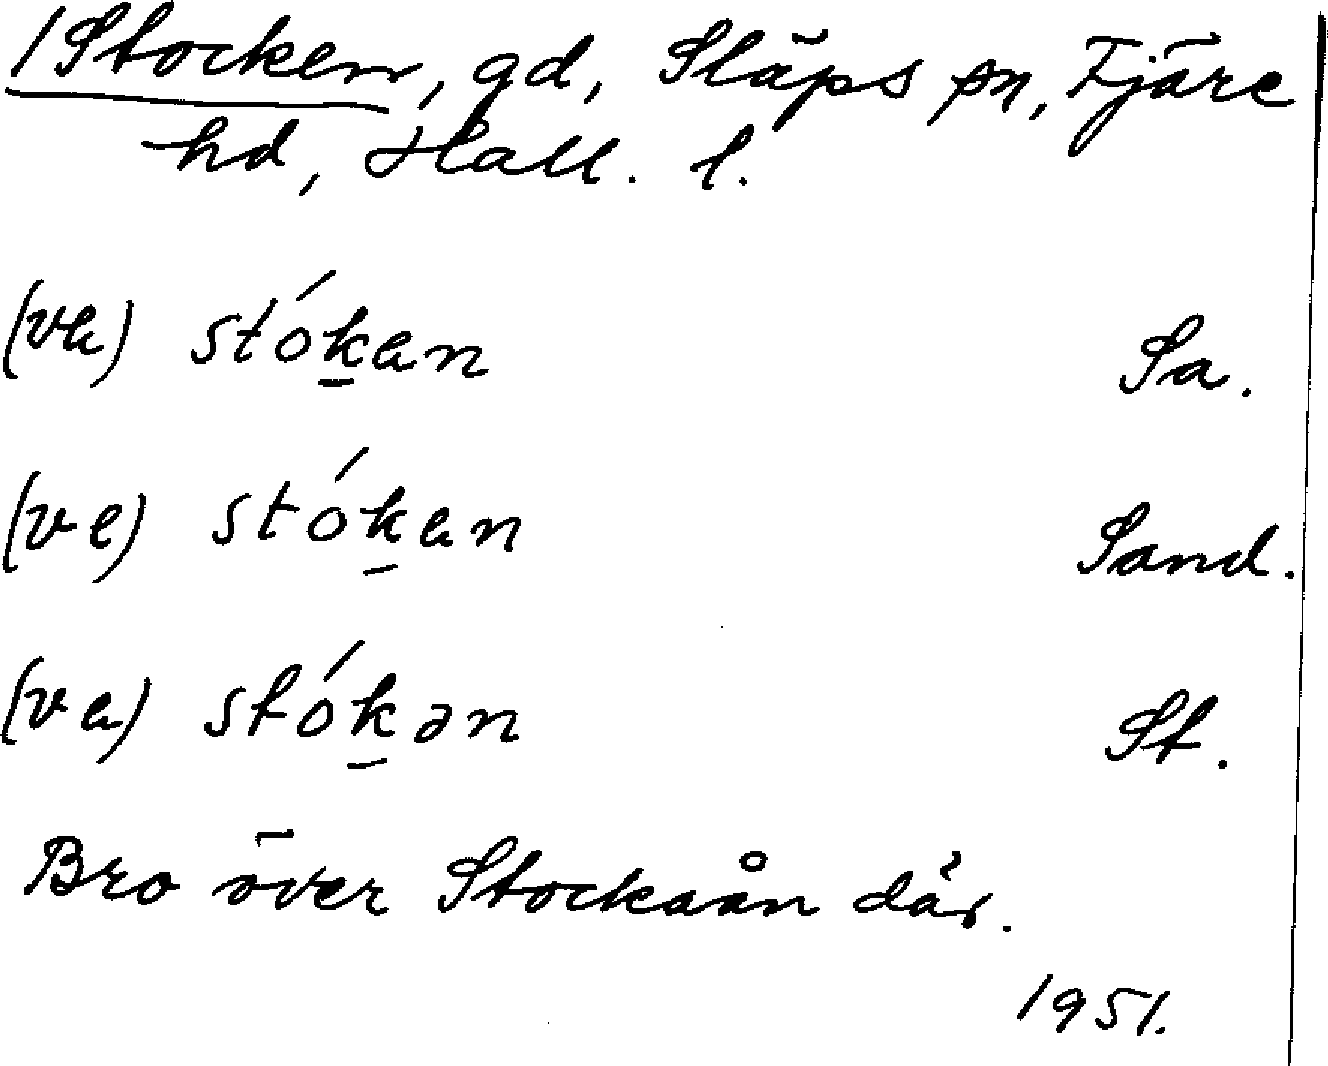 /Stocken, gd, Släps sn, Fjäre
hd, Hall. l.
(va) stók̲an Sa.
(ve) stók̲an Sand.
(va) stók̲ən St.
Bro över Stockaån där.
1951.